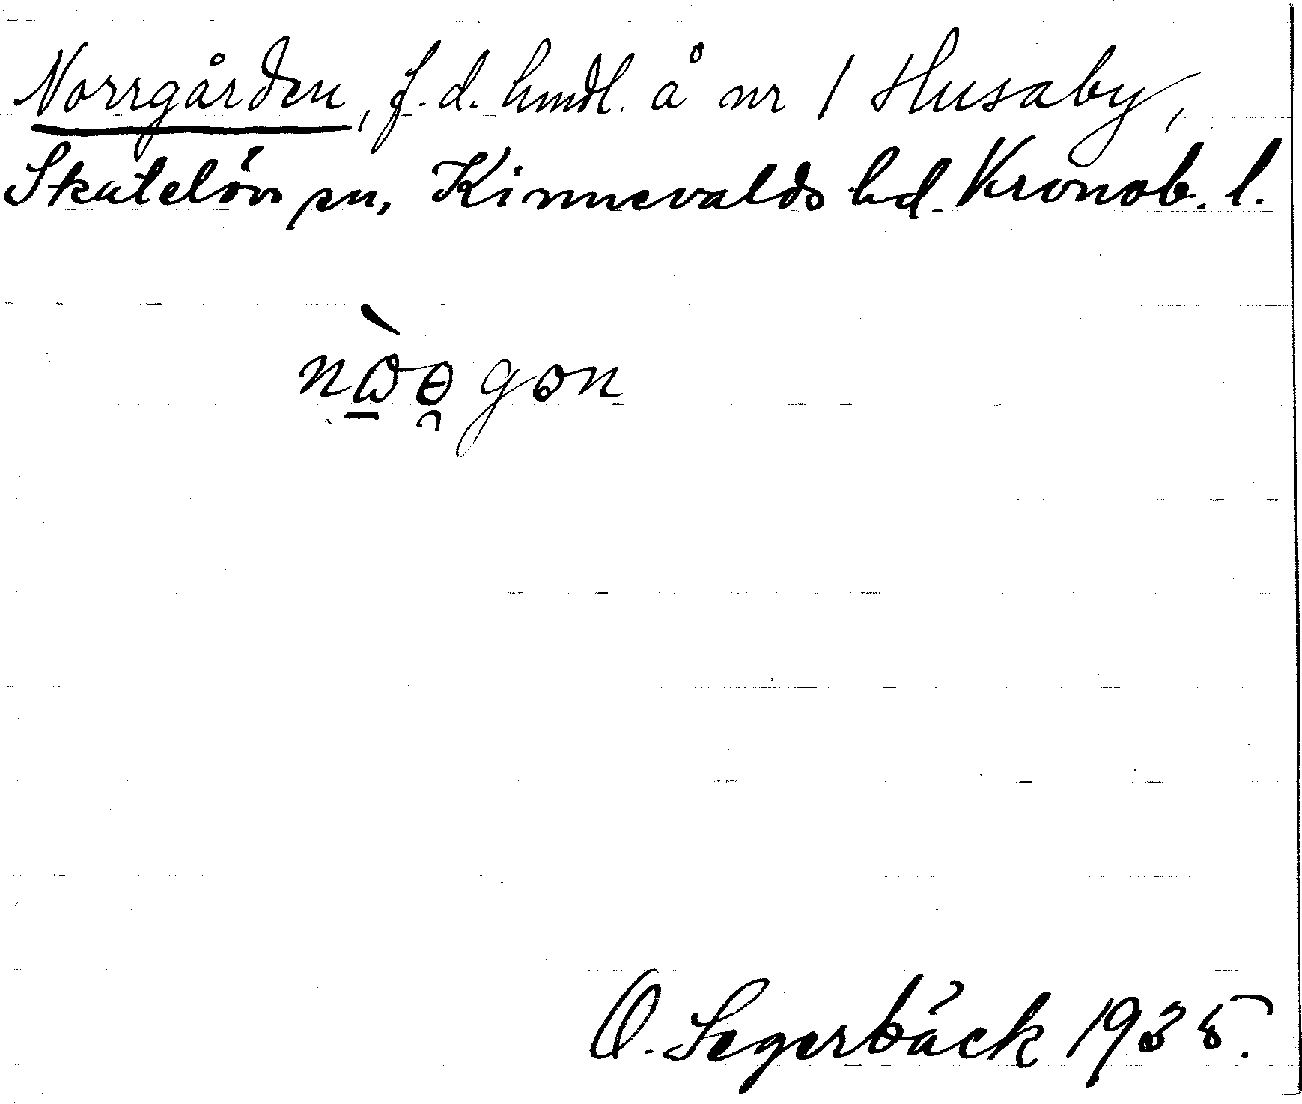 Norrgården, f.d. hmdl. å nr 1 Husaby,
Skatelövs sn, Kinnevalds hd. Kronob. l.
nɷ̠̀ɵ̯gɔn
O. Segerbäck 1935.